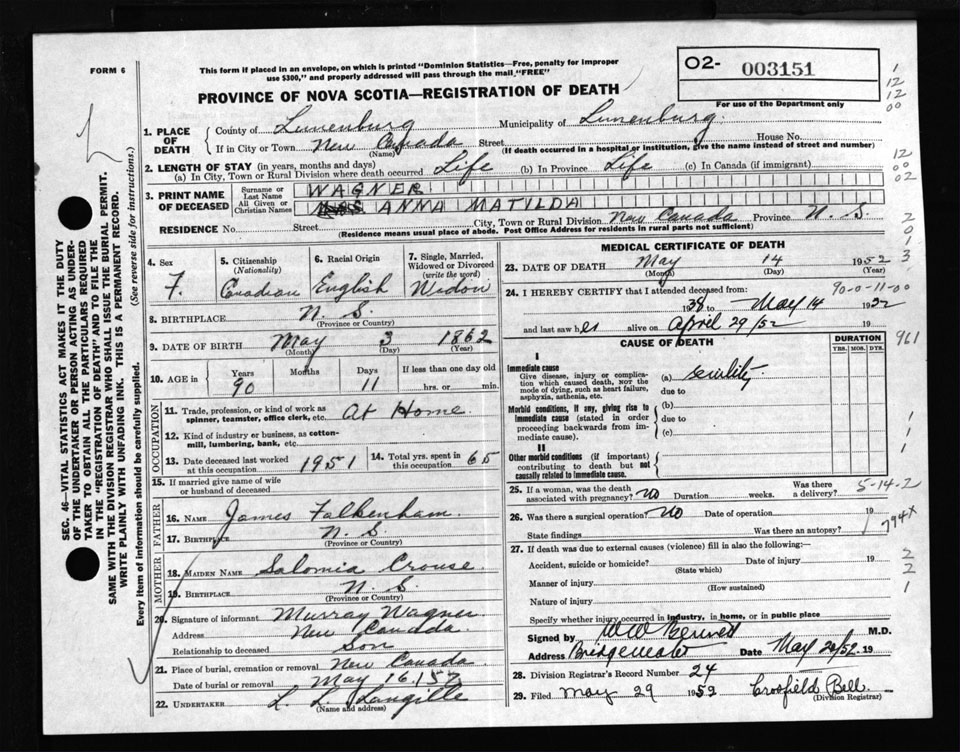 FORM 6
This form if placed in an envelope, on which is printed "Dominion Statistics—Free, penalty for improper
use $300," and properly addressed will pass through the mail "FREE"
O2- 003151
For use of the Department only
PROVINCE OF NOVA SCOTIA—REGISTRATION OF DEATH
1. PLACE OF DEATH County of Lunenburg Municipality of Lunenburg.
If in City or Town New Canada (Name) Street House No.
(If death occurred in a hospital or institution, give the name instead of street and number)
2. LENGTH OF STAY (in years, months and days)
(a) In City, Town or Rural Division where death occurred Life (b) In Province Life (c) In Canada (if immigrant)
3. PRINT NAME OF DECEASED Surname or Last Name WAGNER
All Given or Christian Names MRS ANNA MATILDA
RESIDENCE No. Street City, Town or Rural Division New Canada Province N. S.
(Residence means usual place of abode. Post Office Address for residents in rural parts not sufficient)
4. Sex F. 5. Citizenship (Nationality) Canadian 6. Racial Origin English 7. Single, Married, Widowed or Divorced (write the word) Widow
8. BIRTHPLACE N. S. (Province or Country)
9. DATE OF BIRTH May (Month) 3 (Day) 1862 (Year)
10. AGE in Years 90 Months Days 11 If less than one day old hrs. or min.
OCCUPATION
11. Trade, profession, or kind of work as spinner, teamster, office clerk, etc. At Home.
12. Kind of industry or business, as cotton-mill, lumbering, bank, etc.
13. Date deceased last worked at this occupation 1951 14. Total yrs. spent in this occupation 65
15. If married give name of wife or husband of deceased
FATHER
16. NAME James Falkenham
17. Birthplace N. S (Province or Country)
MOTHER
18. MAIDEN NAME Salomia Crouse
19. BIRTHPLACE N. S (Province or Country)
20. Signature of informant Murray Wagner
Address New Canada.
Relationship to deceased Son
21. Place of burial, cremation or removal New Canada
Date of burial or removal May 16, 1952
22. UNDERTAKER L. L. Langille (Name and address)
MEDICAL CERTIFICATE OF DEATH
23. DATE OF DEATH May (Month) 14 (Day) 1952 (Year)
24. I HEREBY CERTIFY that I attended deceased from: 90-0-11-00
1938 to May 14 1952
and last saw her alive on April 29/52 19
CAUSE OF DEATH
DURATION
YRS. MOS. DYS.
I
Immediate cause
Give disease, injury or complication which caused death, NOT the mode of dying, such as heart failure, asphyxia, asthenia, etc.
(a) Senility
due to
Morbid conditions, if any, giving rise to immediate cause (stated in order proceeding backwards from immediate cause).
(b)
due to
(c)
II
Other morbid conditions (if important) contributing to death but not causally related to immediate cause.
25. If a woman, was the death associated with pregnancy? No Duration weeks. Was there a delivery? 5-14-2
26. Was there a surgical operation? No Date of operation 19
State findings Was there an autopsy? 794X
27. If death was due to external causes (violence) fill in also the following:—
Accident, suicide or homicide? (State which) Date of injury 19
Manner of injury (How sustained)
Nature of injury
Specify whether injury occurred in industry, in home, or in public place
Signed by W W Bennett M.D.
Address Bridgewater Date May 20/52 19
28. Division Registrar's Record Number 24
29. Filed May 29 1952 Crossfield Bell. (Division Registrar)
SEC. 46—VITAL STATISTICS ACT MAKES IT THE DUTY
OF THE UNDERTAKER OR PERSON ACTING AS UNDER-
TAKER TO OBTAIN ALL THE PARTICULARS REQUIRED
IN THE "REGISTRATION OF DEATH" AND TO FILE THE
SAME WITH THE DIVISION REGISTRAR WHO SHALL ISSUE THE BURIAL PERMIT.
WRITE PLAINLY WITH UNFADING INK. THIS IS A PERMANENT RECORD.
Every item of information should be carefully supplied.
(See reverse side for instructions.)
1
12
12
00
12
00
02
2
0
1
3
961
1
1
1
2
2
1